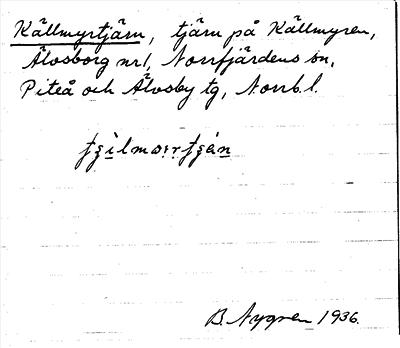 Källmyrtjärn, tjärn på Källmyren,
Älvsborg nr1, Norrfjärdens sn,
Piteå och Älvsby tg, Norrb.l.
B. Nygren 1936.